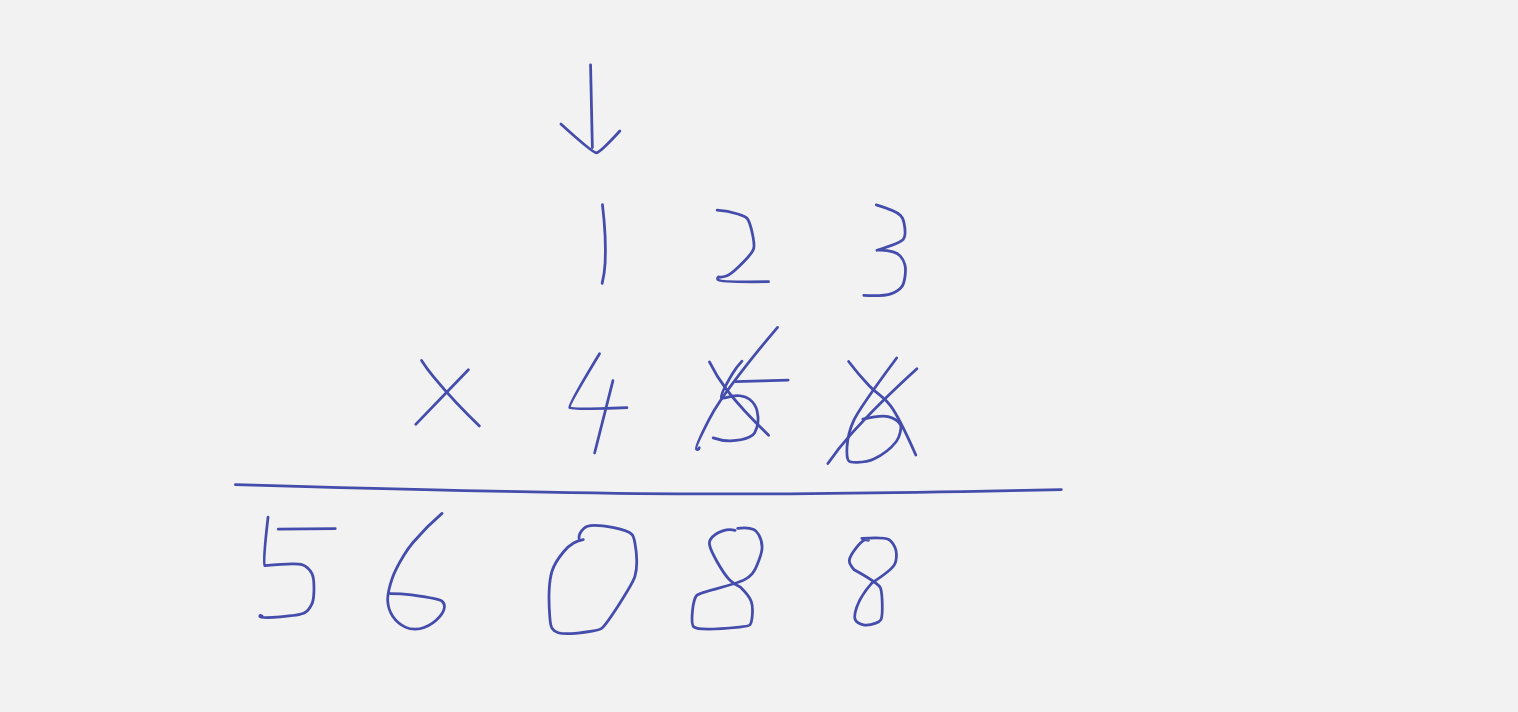 ↓
1 2 3
× 4 5 6
5 6 0 8 8